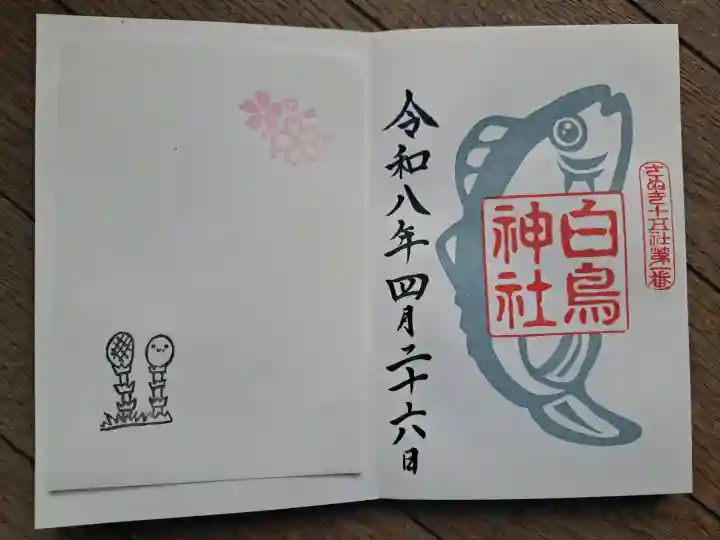 さぬき十五社第一番
白鳥
神社
令和八年四月二十六日